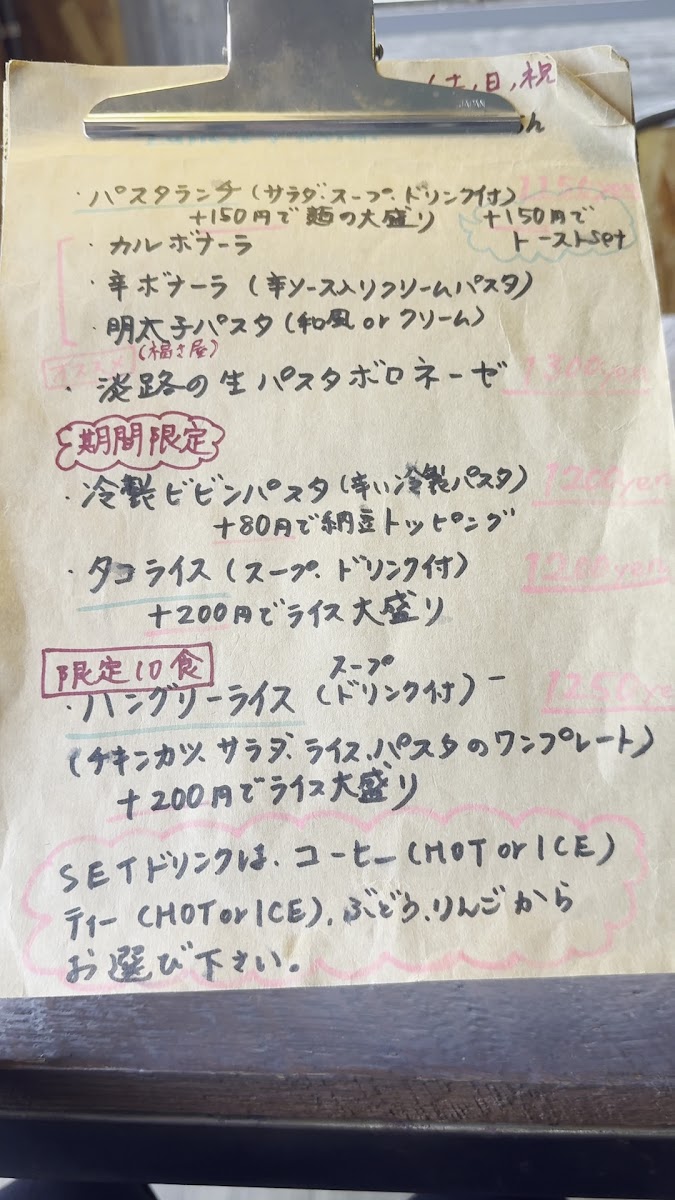 土,日,祝
JAPAN
・パスタランチ(サラダ.スープ.ドリンク付)
+150円で麺の大盛り +150円で
トーストset
・カルボナーラ
・辛ボナーラ(辛ソース入りクリームパスタ)
・明太子パスタ(和風orクリーム)
(福さ屋)
オススメ
・淡路の生パスタボロネーゼ 1300yen
期間限定
・冷製ビビンパスタ(辛い冷製パスタ) 1200yen
+80円で納豆トッピング
・タコライス(スープ.ドリンク付) 1200yen
+200円でライス大盛り
限定10食
スープ
・ハングリーライス(ドリンク付) 1250ye
(チキンカツ.サラダ.ライス.パスタのワンプレート)
+200円でライス大盛り
SETドリンクは、コーヒー(HOTorICE)
ティー(HOTorICE),ぶどう、りんごから
お選び下さい。